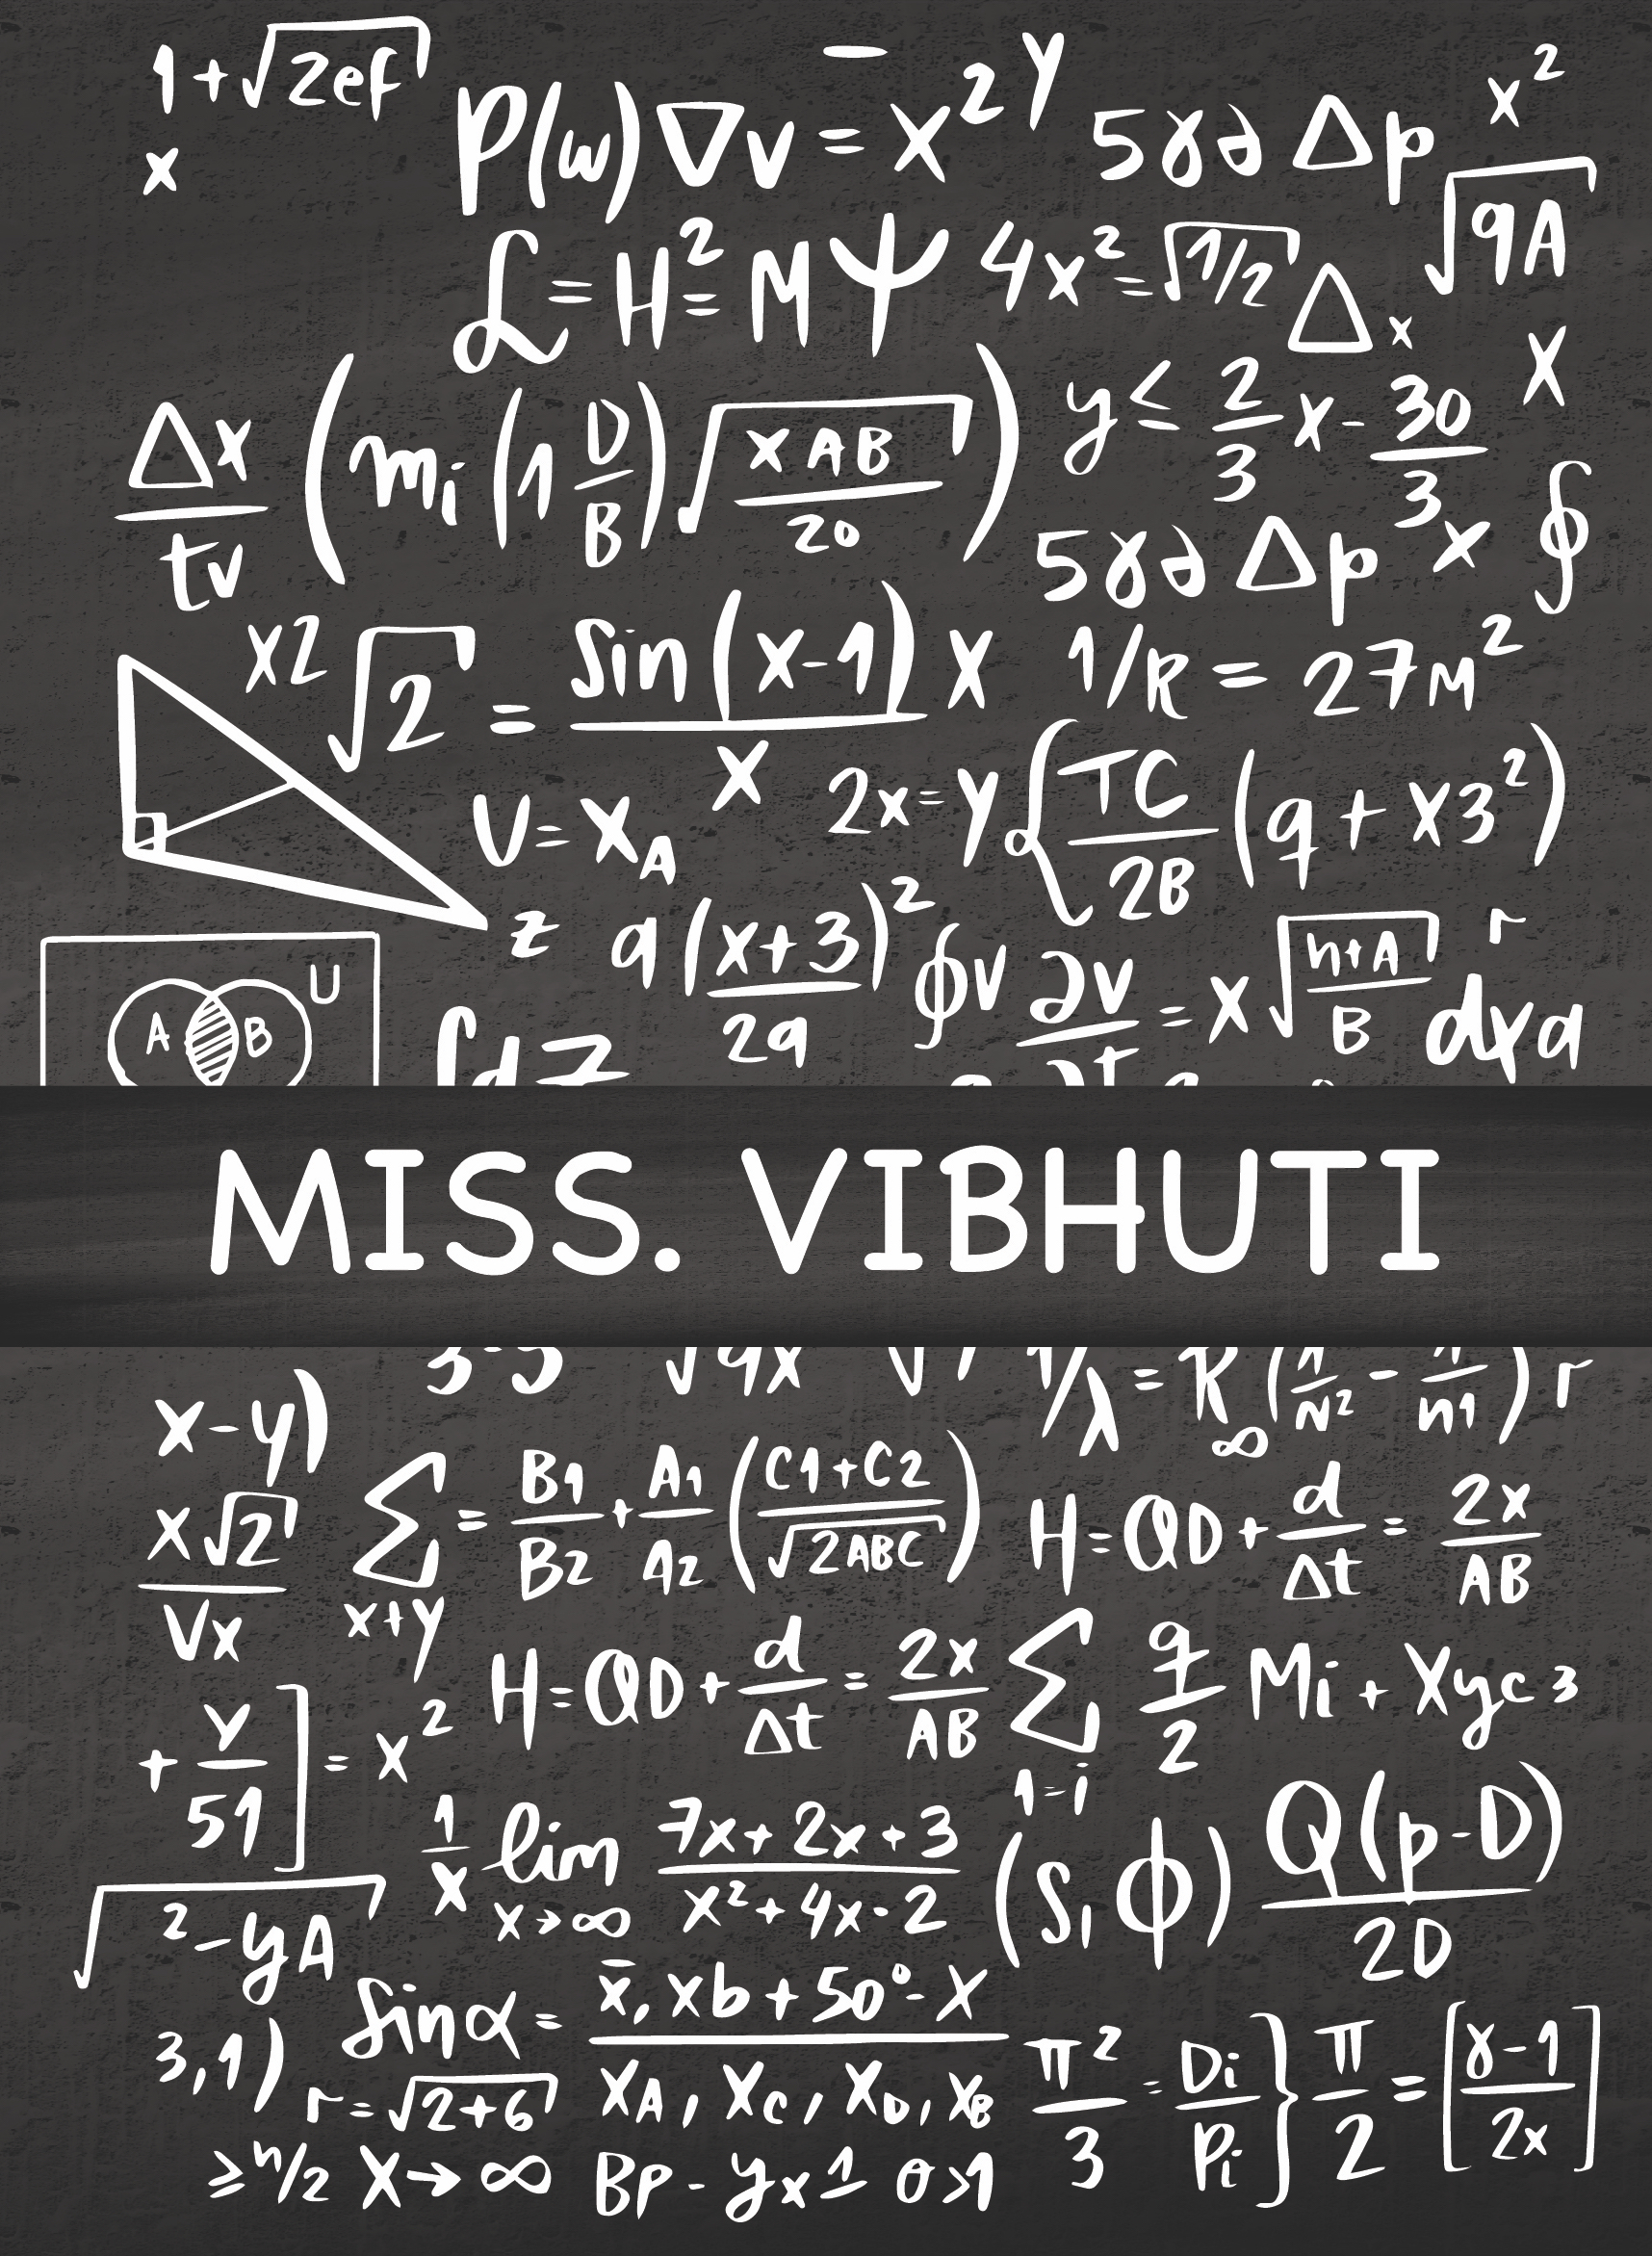 1+√2ef
x
P(w)∇v = x²y 5γ∂ Δp x²
ℒ=H²=MΨ 4x²=√1/2 Δx √9A
x
Δx/tv (mi (1 D/B) √(xAB/20)) y ≤ 2/3 x - 30/3
5γ∂ Δp x ∮
x2 √2 = sin(x-1)/x x 1/R = 27M²
U=xA 2x=y { TC/2B (q+x3²)
z a(x+3)²/2a ∮v ∂v/∂t = x √(n+A)/B dxa r
A B U
∫dz
MISS. VIBHUTI
√9x
1/λ = R∞ (1/N² - 1/n1) r
x-y)
x√2/Vx Σ x+y = B1/B2 + A1/A2 (C1+C2/√2ABC) H=QD+d/Δt = 2x/AB
+ y/51 ] = x² H=QD+d/Δt = 2x/AB Σ 1=i q/2 Mi + Xyc3
1/x lim x→∞ 7x+2x+3/x²+4x-2 (S, ϕ) Q(p-D)/2D
√²-yA
3,1) Sinα = x̄, xb+50°-x/xA, xC, xD, xB π²/3 = Di/Pi } π/2 = [γ-1/2x]
r=√2+6
≥n/2 x→∞ BP-yx1 0>1